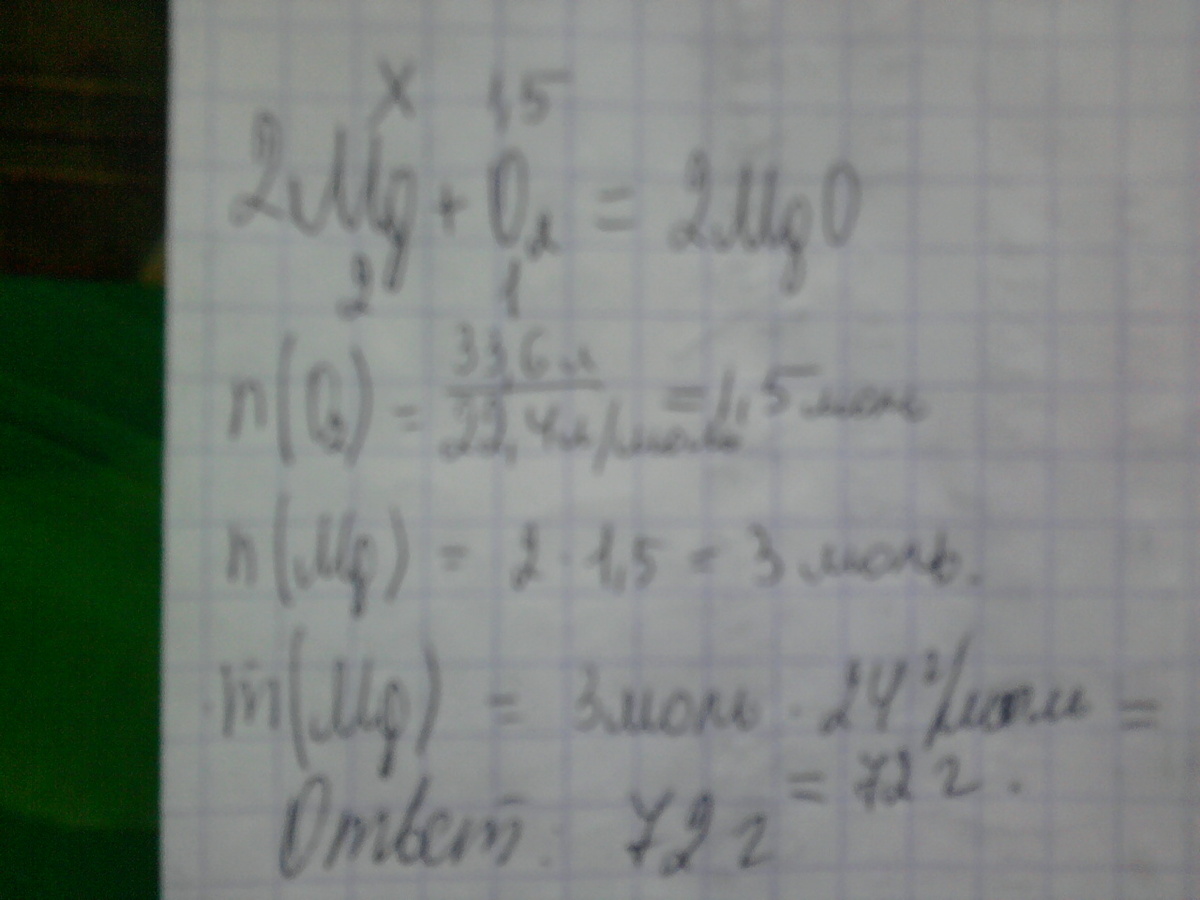 x 1,5
2Mg + O₂ = 2MgO
2 1
n(O₂) = 33,6 л / 22,4 л/моль = 1,5 моль
n(Mg) = 2 · 1,5 = 3 моль.
m(Mg) = 3 моль · 24 г/моль =
= 72 г.
Ответ: 72 г